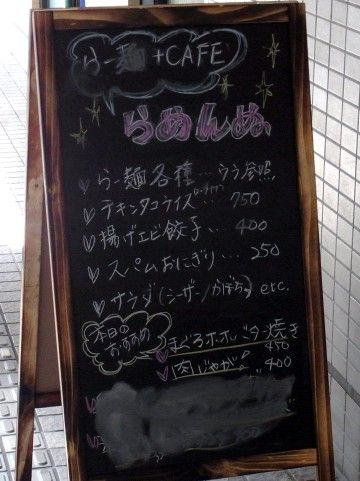 らー麺+CAFE
らめんぬ
らー麺各種…ウラ参照
チキンタコライス… 750
揚げエビ餃子… 400
スパムおにぎり… 250
サラダ(シーザー/かぼちゃ) etc.
本日のおすすめ
まぐろホホバター焼き
450
肉じゃが 400